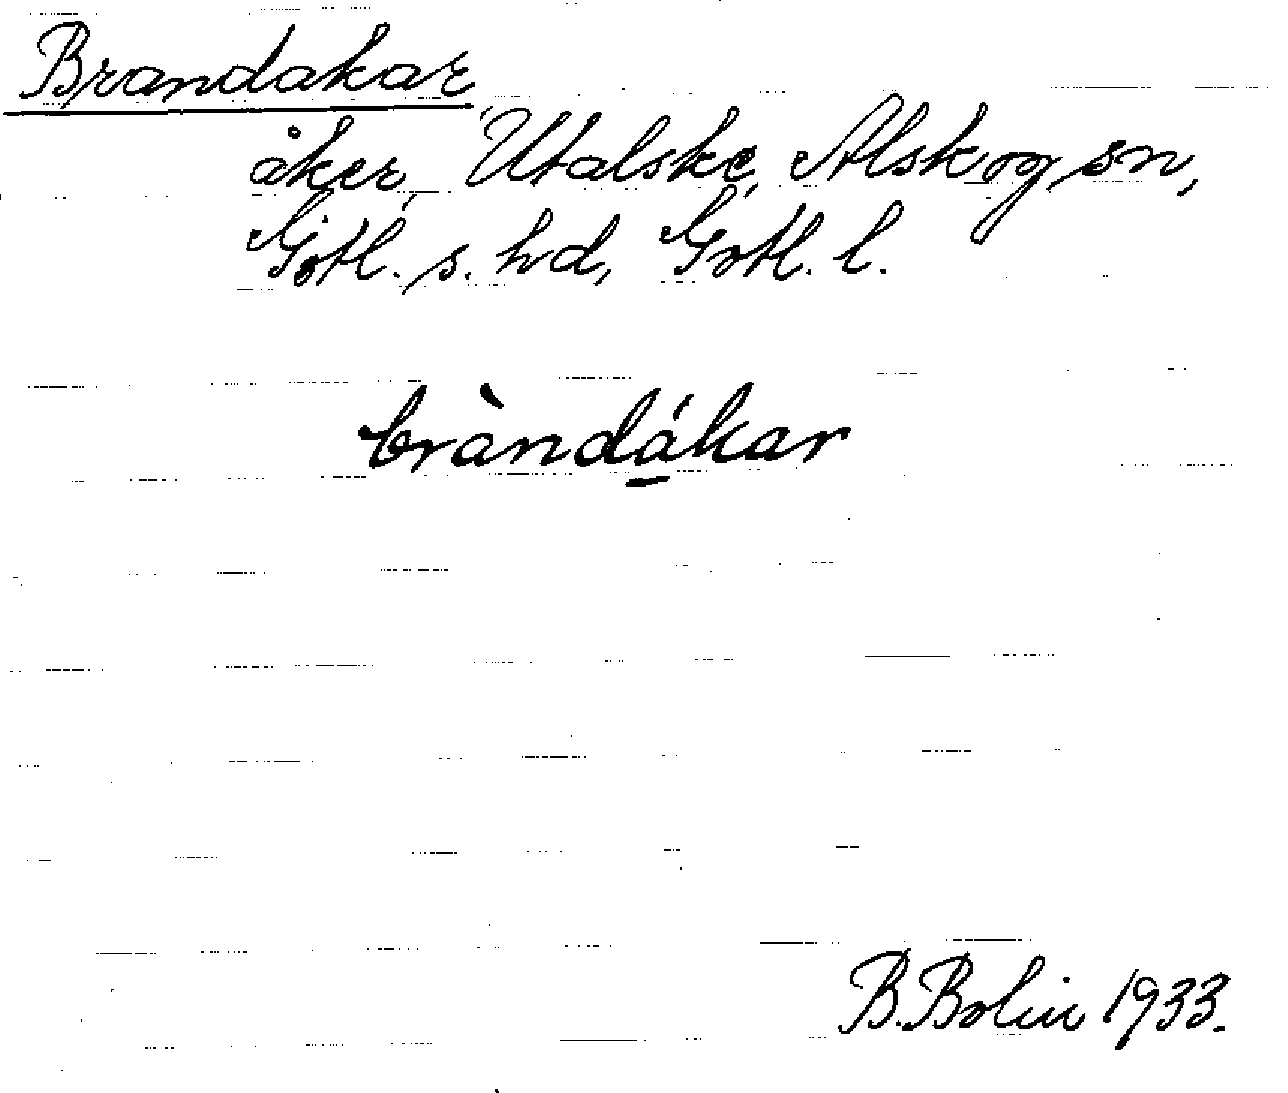 Brandakar
åker, Utalske, Alskog sn,
Gotl. s. hd, Gotl. l.
bràndákar
B. Bolin 1933.